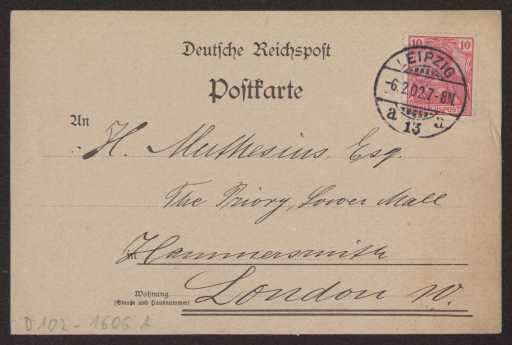 Deutsche Reichspost
Postkarte
10 10
LEIPZIG
-6.2.02.7-8N.
a 13 a
An
H. Muthesius, Esq.
The Priory, Lower Mall
in Hammersmith
Wohnung
(Straße und Hausnummer)
London W.
D 102 - 1606 A